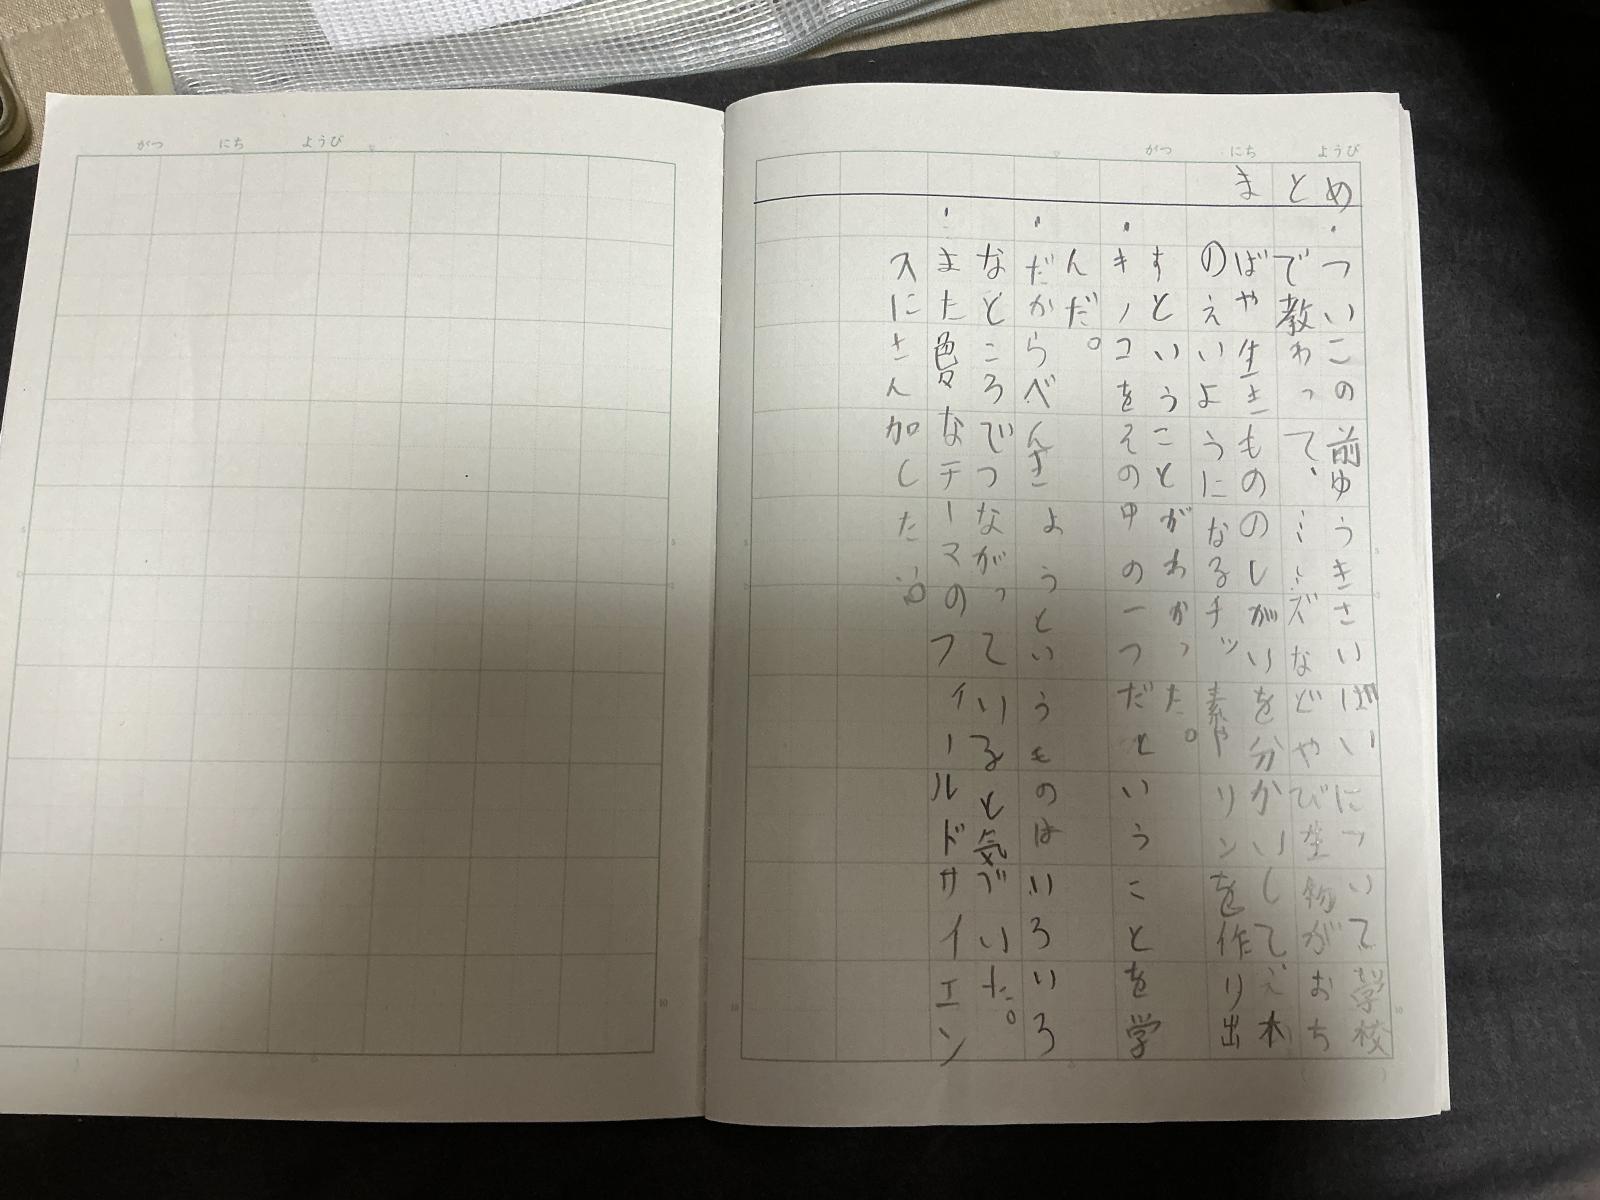 がつ にち ようび
がつ にち ようび
まとめ
・ついこの前ゆうきさいばいについて学校
で教わって、ミミズなどやび生物がおち
ばや生きもののしがいを分かいして、木
のえいようになるチッ素やリンを作り出
すということがわかった。
・キノコをその中の一つだということを学
んだ。
・だからべんきようというものはいろいろ
なところでつながっているど気づいた。
・また色々なテーマのフィールドサイエン
スにさん加したい。
5
10
5
10
5
10